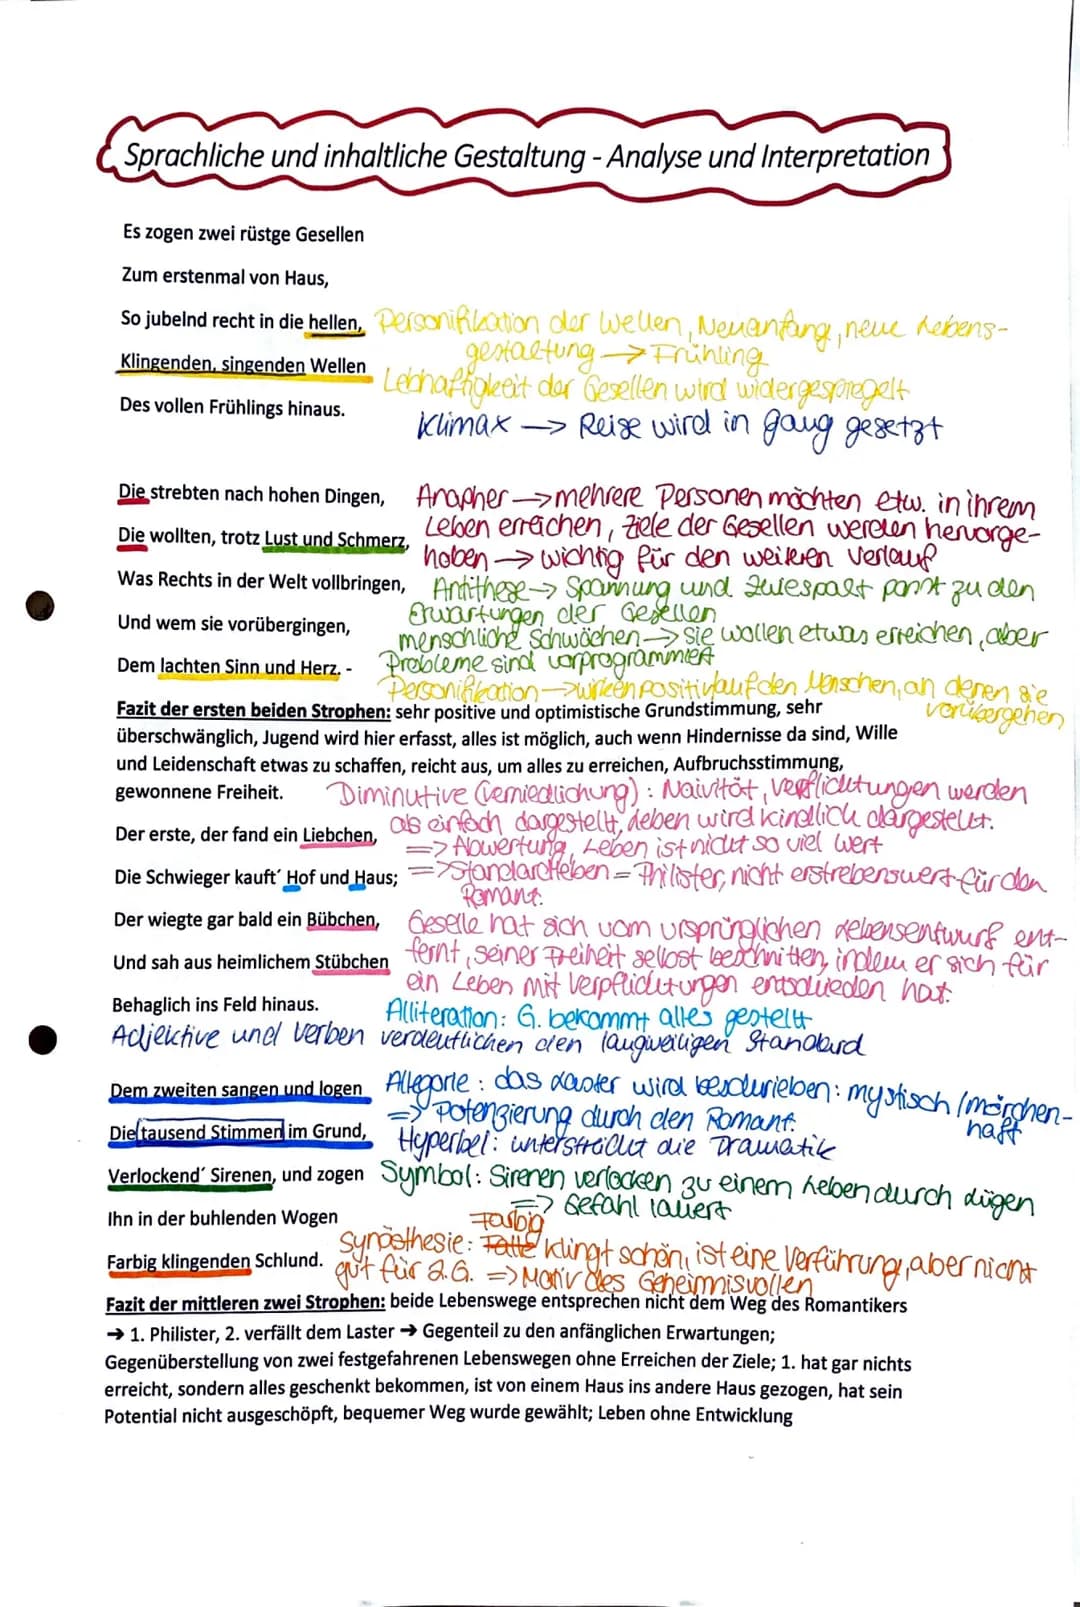 Sprachliche und inhaltliche Gestaltung - Analyse und Interpretation
Es zogen zwei rüstge Gesellen
Zum erstenmal von Haus,
So jubelnd recht in die hellen, Personifikation der Wellen, Neuanfang, neue Lebens-
gestaltung → Frühling
Klingenden, singenden Wellen
Lebhaftigkeit der Gesellen wird widergespiegelt
Des vollen Frühlings hinaus.
Klimax → Reise wird in gang gesetzt
Die strebten nach hohen Dingen, Anapher → mehrere Personen möchten etw. in ihrem
Leben erreichen, Ziele der Gesellen werden hervorge-
Die wollten, trotz Lust und Schmerz,
hoben → wichtig für den weiteren Verlauf
Was Rechts in der Welt vollbringen, Antithese → Spannung und Zwiespalt passt zu den
Erwartungen der Gesellen
Und wem sie vorübergingen,
menschliche Schwächen → sie wollen etwas erreichen, aber
Dem lachten Sinn und Herz. - Probleme sind vorprogrammiert
Personifikation → wirken positiv auf den Menschen, an denen sie
vorübergehen
Fazit der ersten beiden Strophen: sehr positive und optimistische Grundstimmung, sehr
überschwänglich, Jugend wird hier erfasst, alles ist möglich, auch wenn Hindernisse da sind, Wille
und Leidenschaft etwas zu schaffen, reicht aus, um alles zu erreichen, Aufbruchsstimmung,
gewonnene Freiheit. Diminutive (Verniedlichung): Naivität, Verpflichtungen werden
als einfach dargestellt, Leben wird kindlich dargestellt.
Der erste, der fand ein Liebchen,
=> Abwertung, Leben ist nicht so viel Wert
Die Schwieger kauft´ Hof und Haus; => Standardleben = Philister, nicht erstrebenswert für den
Romant.
Der wiegte gar bald ein Bübchen, Geselle hat sich vom ursprünglichen Lebensentwurf ent-
fernt, seiner Freiheit selbst beschnitten, indem er sich für
Und sah aus heimlichem Stübchen
ein Leben mit Verpflichtungen entschieden hat.
Behaglich ins Feld hinaus.
Alliteration: G. bekommt alles gestellt
Adjektive und Verben verdeutlichen den langweiligen Standard
Dem zweiten sangen und logen Allegorie: das Laster wird beschrieben: mystisch/märchen-
haft
=> Potenzierung durch den Romant.
Die tausend Stimmen im Grund,
Hyperbel: unterstreicht die Dramatik
Verlockend´ Sirenen, und zogen Symbol: Sirenen verlocken zu einem Leben durch Lügen
=> Gefahl lauert
Ihn in der buhlenden Wogen
Farbig
Farbig klingenden Schlund. Synästhesie: Falle klingt schön, ist eine Verführung, aber nicht
gut für 2.G. => Motiv des Geheimnisvollen
Fazit der mittleren zwei Strophen: beide Lebenswege entsprechen nicht dem Weg des Romantikers
→ 1. Philister, 2. verfällt dem Laster → Gegenteil zu den anfänglichen Erwartungen;
Gegenüberstellung von zwei festgefahrenen Lebenswegen ohne Erreichen der Ziele; 1. hat gar nichts
erreicht, sondern alles geschenkt bekommen, ist von einem Haus ins andere Haus gezogen, hat sein
Potential nicht ausgeschöpft, bequemer Weg wurde gewählt; Leben ohne Entwicklung